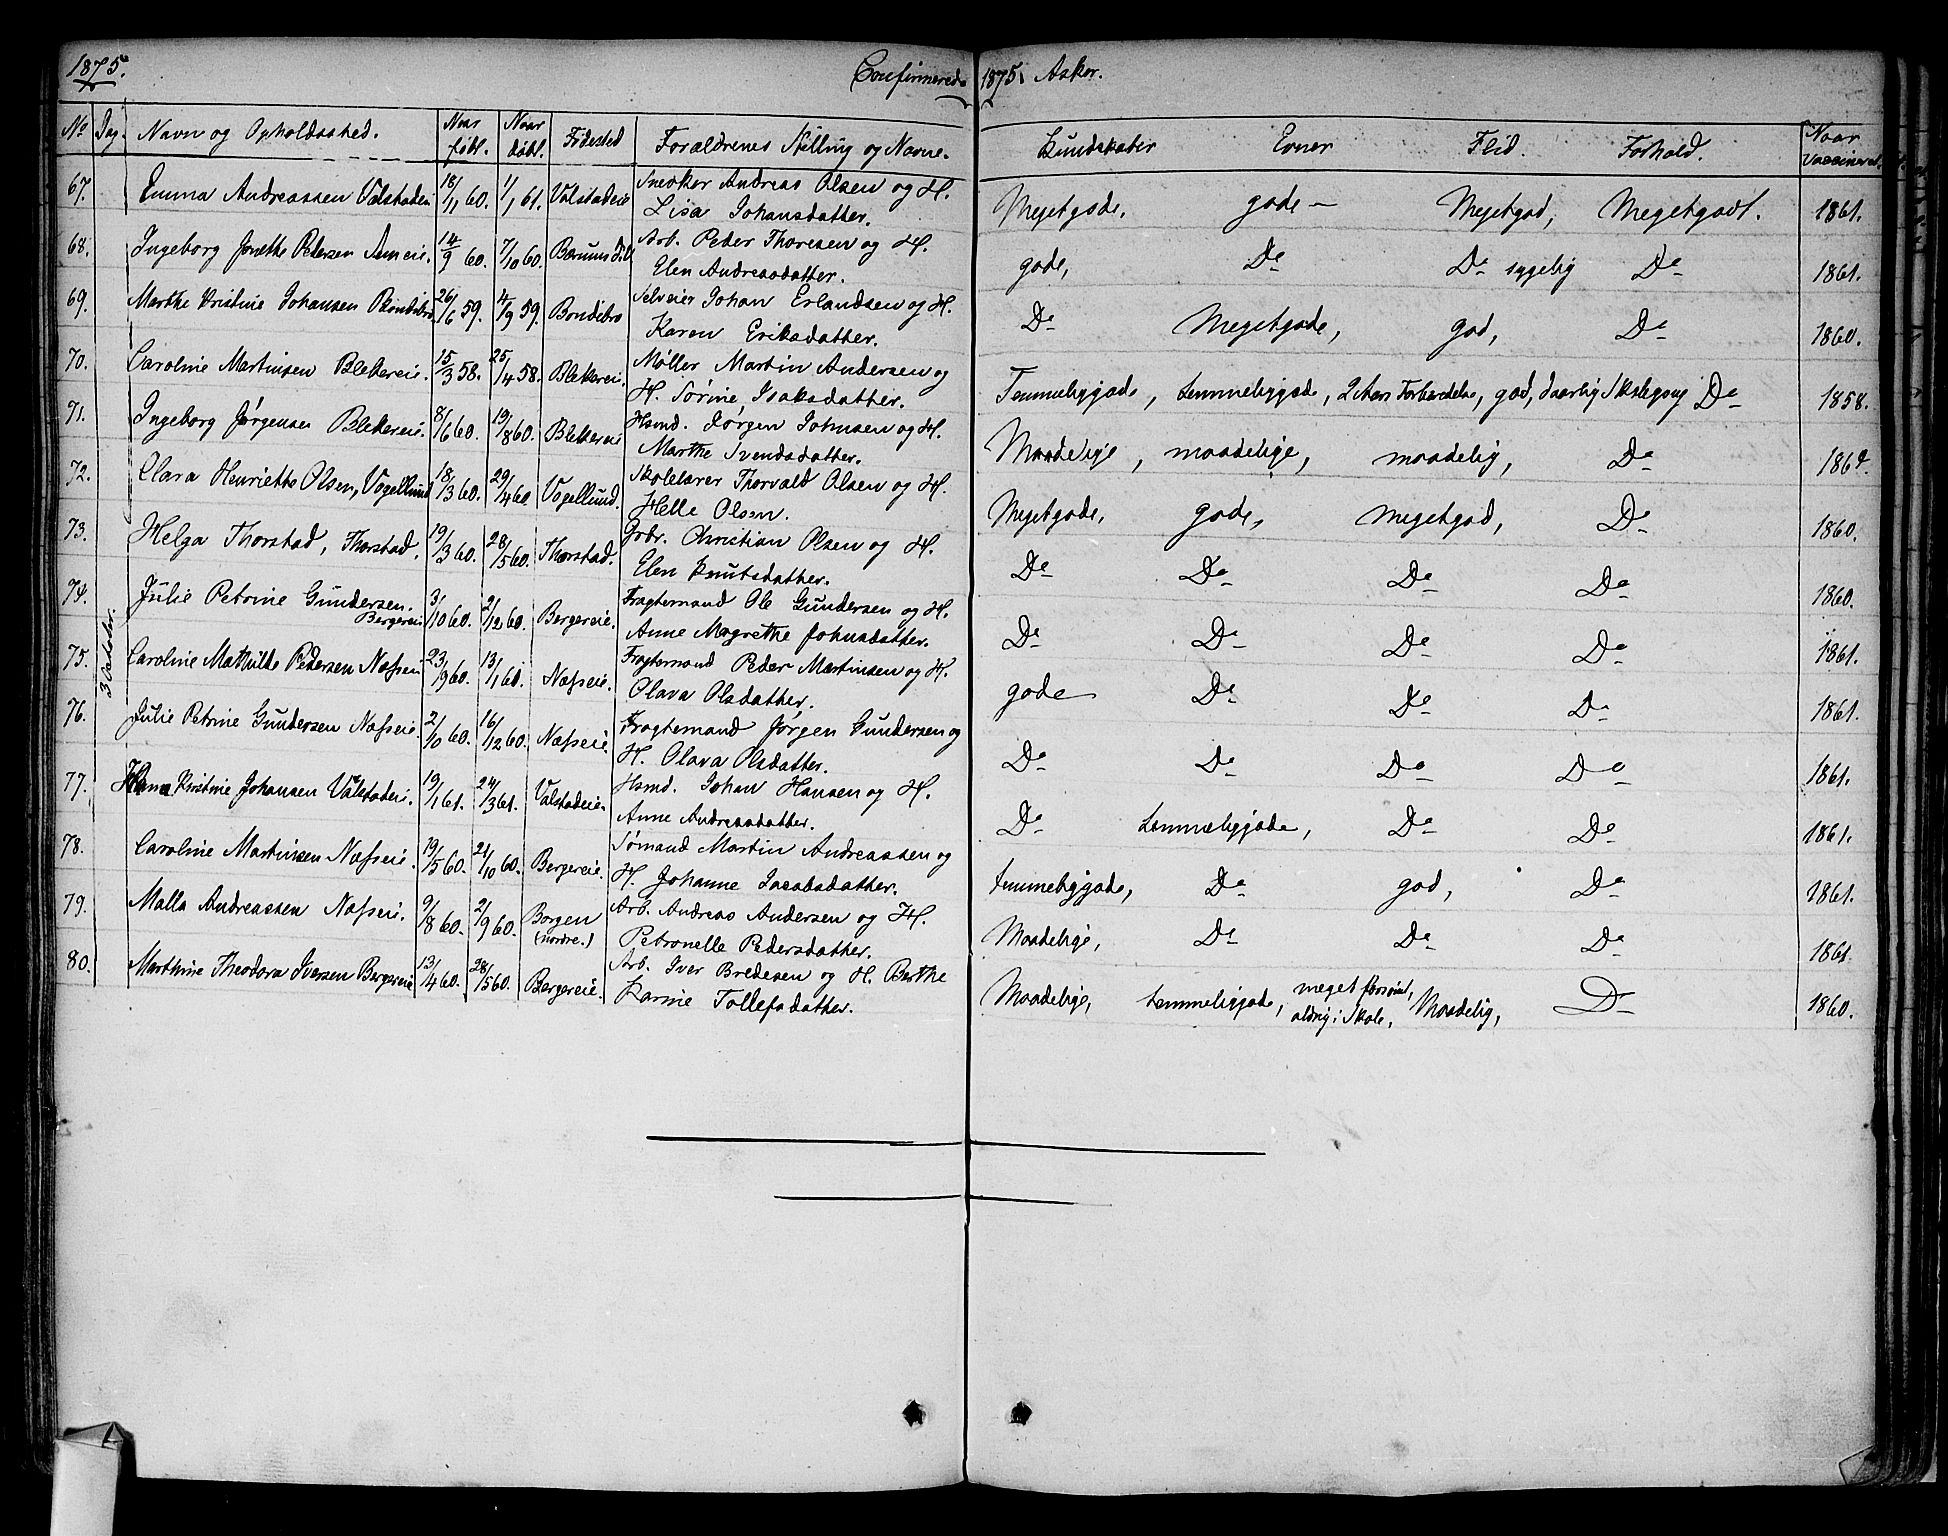 1875. Confirmerede 1875. Asker.
No Dag. Navn og Opholdssted. Naar født. Naar døbt. Fødested Forældrenes Stilling og Navne. Kundskaber Evner Flid. Forhold. Naar vaccineret.
67. Emma Andreassen Valstadeie 18/11 60. 1/1 61. Valstadeie Snedker Andreas Olsen og H. Megetgode, gode – Megetgod, Megetgodt. 1861.
Lisa Johansdatter.
68. Ingeborg Petersen 14/9 60. 7/10 60. Bærums Arb. Peder Thoresen og H. gode, Do Do sygelig Do 1861.
Elen Andreasdatter.
69. Marthe Kristine Johansen Bondebro 26/6 59. 4/9 59. Bondebro Selveier Johan Erlandsen og H. Do Megetgode, god, Do 1860.
Karen Eriksdatter.
70. Caroline Martinsen Blekereie. 15/3 58. 25/4 58. Blekereie. Møller Martin Andersen og Temmeliggode, temmeliggode, 2 Aars Forberedelse, god, daarlig Skolegang Do 1858.
H. Sørine Isaksdatter.
71. Ingeborg Jørgensen Blekereie. 8/6 60. 19/8 60. Blekereie Hsmd. Jørgen Johnsen og H. Maadelige, maadelige, maadelig, Do
Marthe Svendsdatter.
72. Clara Henriette Olsen, Vogellund 18/3 60. 29/4 60. Vogellund. Skolelærer Thorvald Olsen og H. Megetgode, gode, megetgod, Do 1860.
Helle Olsen.
73. Helga Thorstad, Thorstad. 19/3 60. 28/5 60. Thorstad. Grbr. Christian Olsen og H. Do Do Do Do 1860.
Elen Knutsdatter.
74. Julie Petrine Gundersen. Bergereie 3/10 60. 2/12 60. Bergereie. Fragtemand Ole Gundersen og H. Do Do Do Do 1861.
Anne Magrethe Johnsdatter.
3 October.
75. Caroline Mathilde Pedersen Næfseie 23/9 60. 13/1 60. Næfseie. Fragtemand Peder Martinsen og H. gode Do Do Do 1861.
Olava Olsdatter.
76. Julie Petrine Gundersen Næfseie. 2/10 60. 16/12 60. Næfseie Fragtemand Jørgen Gundersen og Do Do Do Do 1861.
H. Olava Olsdatter.
77. Kristine Johansen Valstadeie. 19/1 61. 24/3 61. Valstadeie Hsmd. Johan Hansen og H. Do temmeliggode, Do Do 1861.
Anne Andreasdatter.
78. Caroline Martinsen Næfseie. 19/5 60. 21/10 60. Bergereie. Sømand Martin Andreassen og temmeliggode, Do god, Do 1861.
H. Johanne Jacobsdatter.
79. Malla Andreassen Næfseie. 9/8 60. 2/9 60. Borgen (nordre.) Arb. Andreas Andersen og H. Maadelige, Do Do Do 1861.
Petronelle Pedersdatter.
80. Marthine Theodora Iversen Bergereie 13/4 60. 28/5 60. Bergereie. Arb. Iver Bredesen og H. Berthe Maadelige, temmeliggode, meget forsømt, aldrig i Skole, Maadelig, Do 1860.
Karine Tollefsdatter.